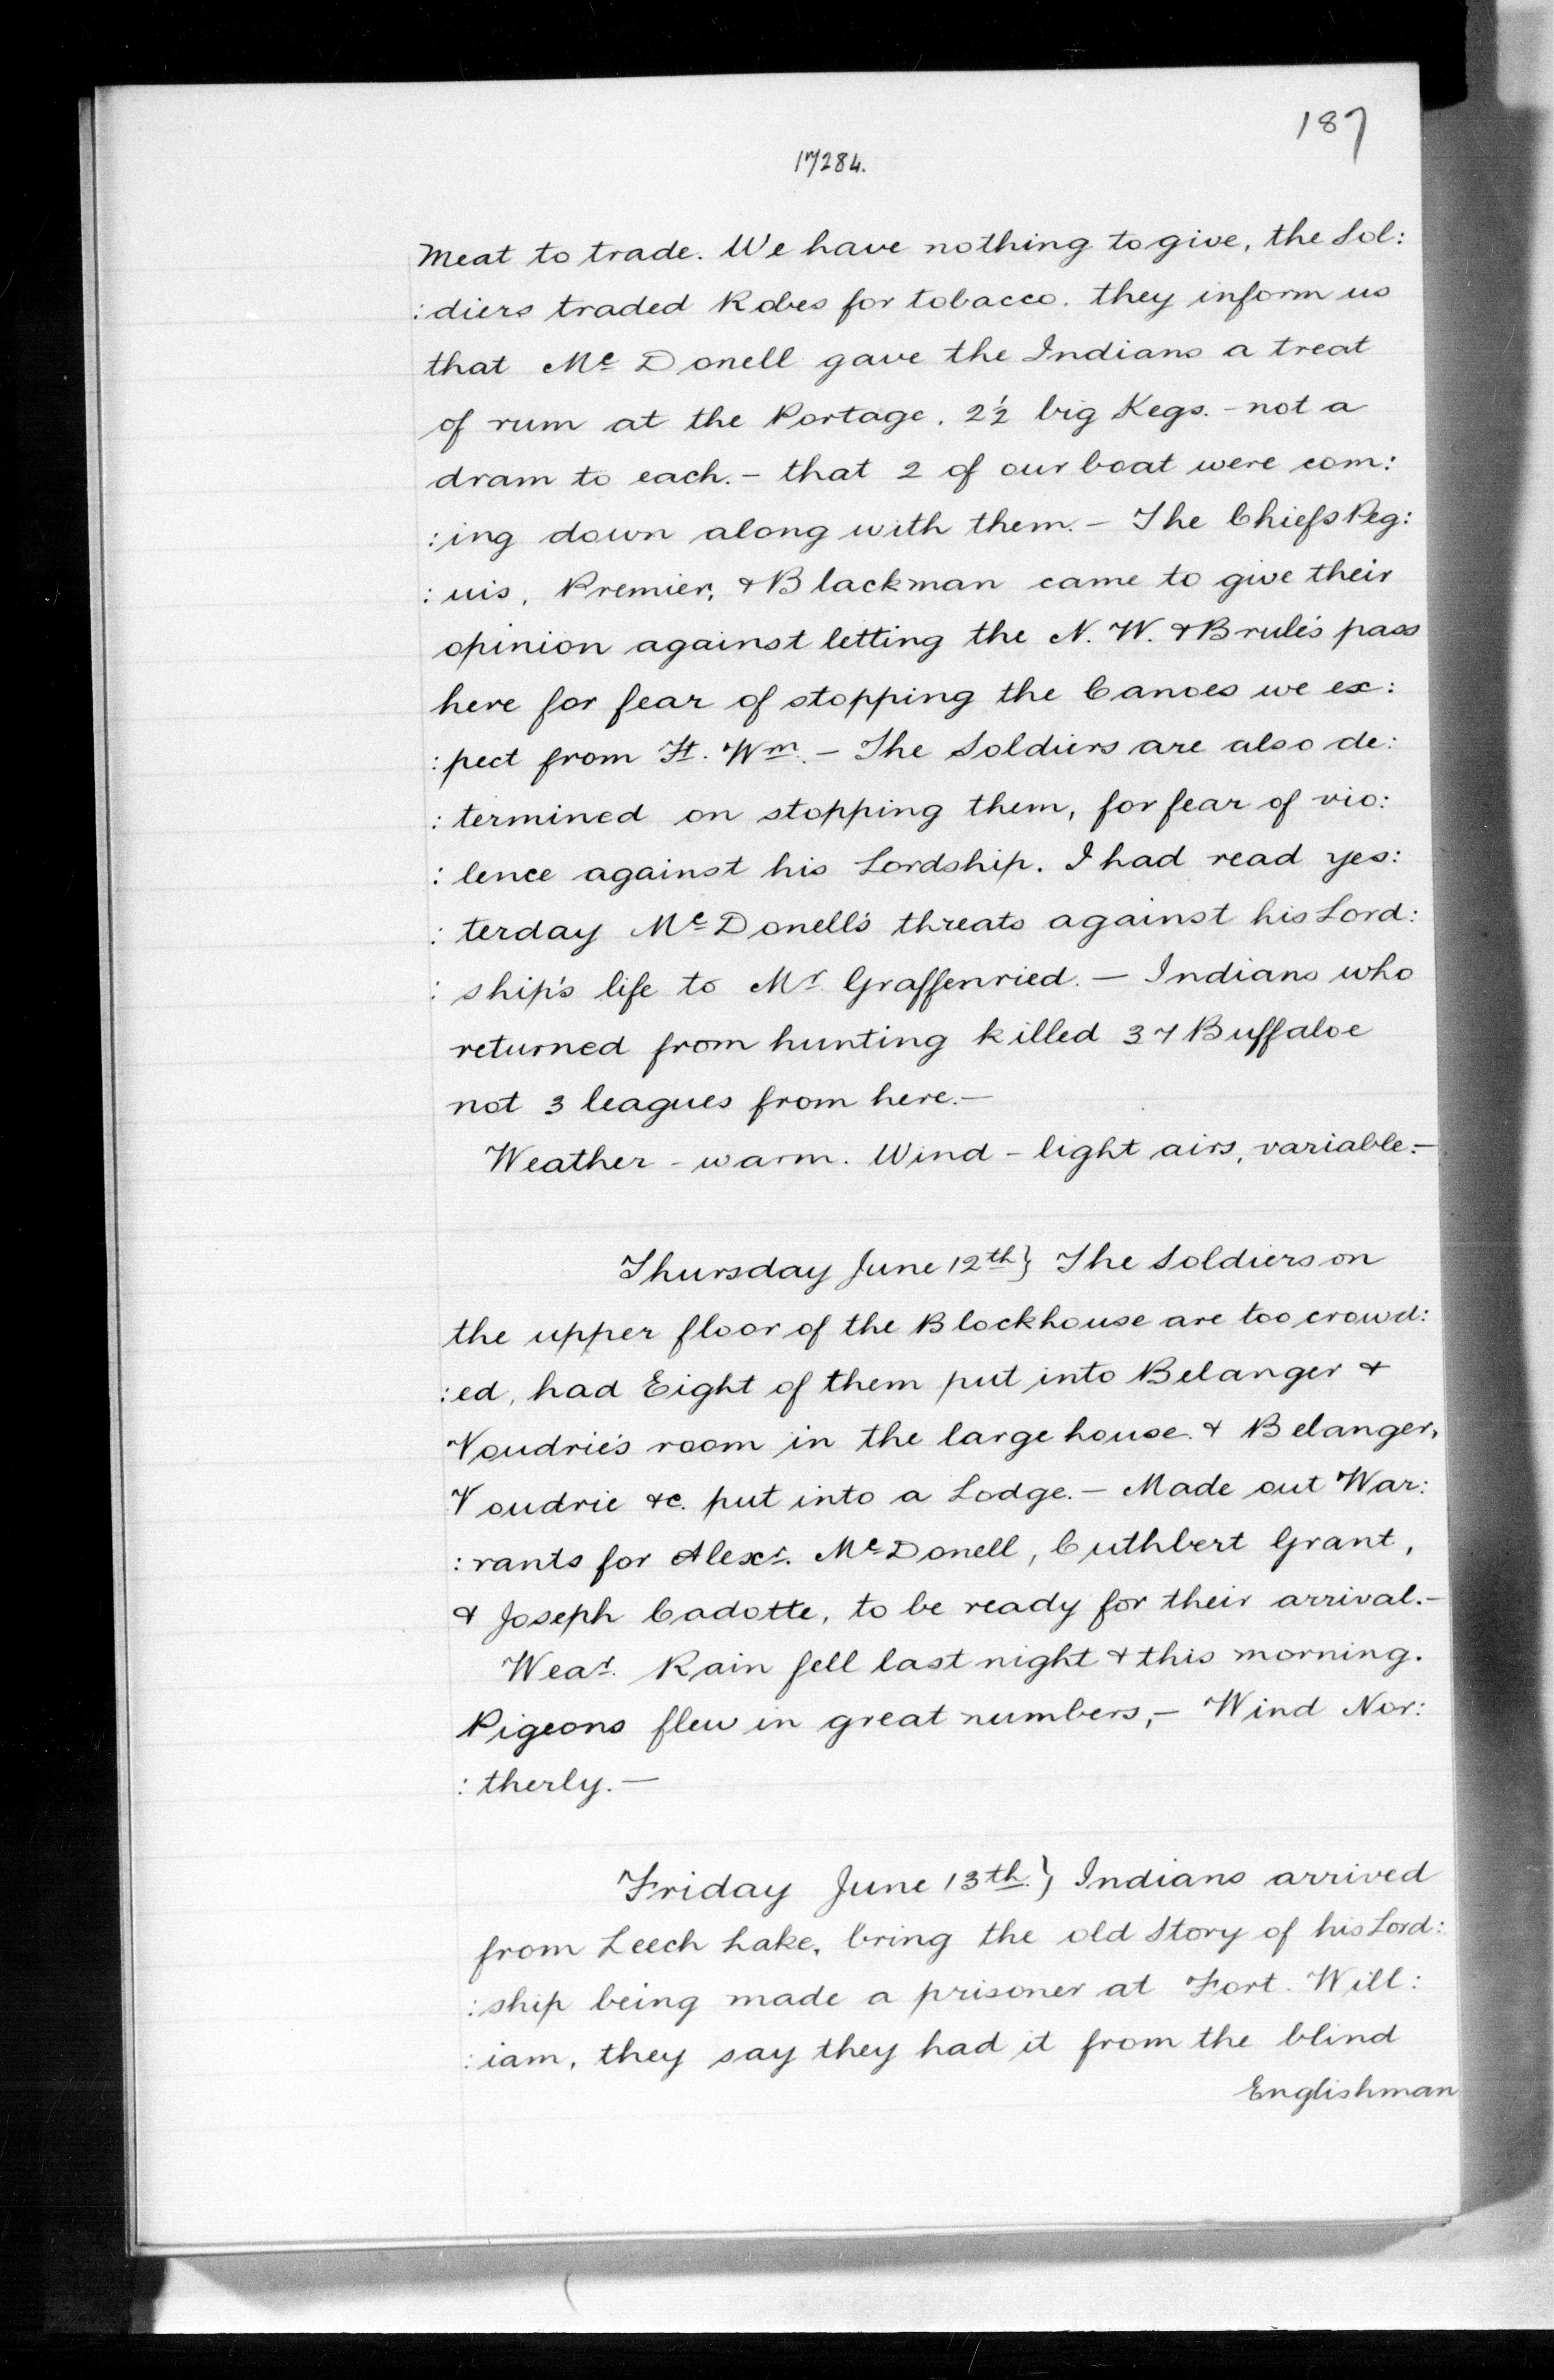 187
17284.
Meat to trade. We have nothing to give, the Sol:
:diers traded Robes for tobacco. they inform us
that Mc Donell gave the Indians a treat
of rum at the Portage. 2½ big Kegs. - not a
dram to each. - that 2 of our boat were com:
:ing down along with them. - The Chiefs Peg:
:uis, Premier, & Blackman came to give their
opinion against letting the N. W. & Brulés pass
here for fear of stopping the Canoes we ex:
:pect from Ft. Wm. - The Soldiers are also de:
:termined on stopping them, for fear of vio:
:lence against his Lordship. I had read yes:
:terday McDonell's threats against his Lord:
:ship's life to Mr. Graffenried. - Indians who
returned from hunting killed 37 Buffaloe
not 3 leagues from here. -
Weather - warm. Wind - light airs, variable. -
Thursday June 12th} The Soldiers on
the upper floor of the Blockhouse are too crowd:
:ed, had Eight of them put into Belanger &
Voudrie's room in the large house. & Belanger,
Voudrie &c. put into a Lodge. - Made out War:
:rants for Alexr. McDonell, Cuthbert Grant,
& Joseph Cadotte, to be ready for their arrival. -
Wear. Rain fell last night & this morning.
Pigeons flew in great numbers, - Wind Nor:
:therly. -
Friday June 13th.} Indians arrived
from Leech Lake, bring the old Story of his Lord:
:ship being made a prisoner at Fort. Will:
:iam, they say they had it from the blind
Englishman